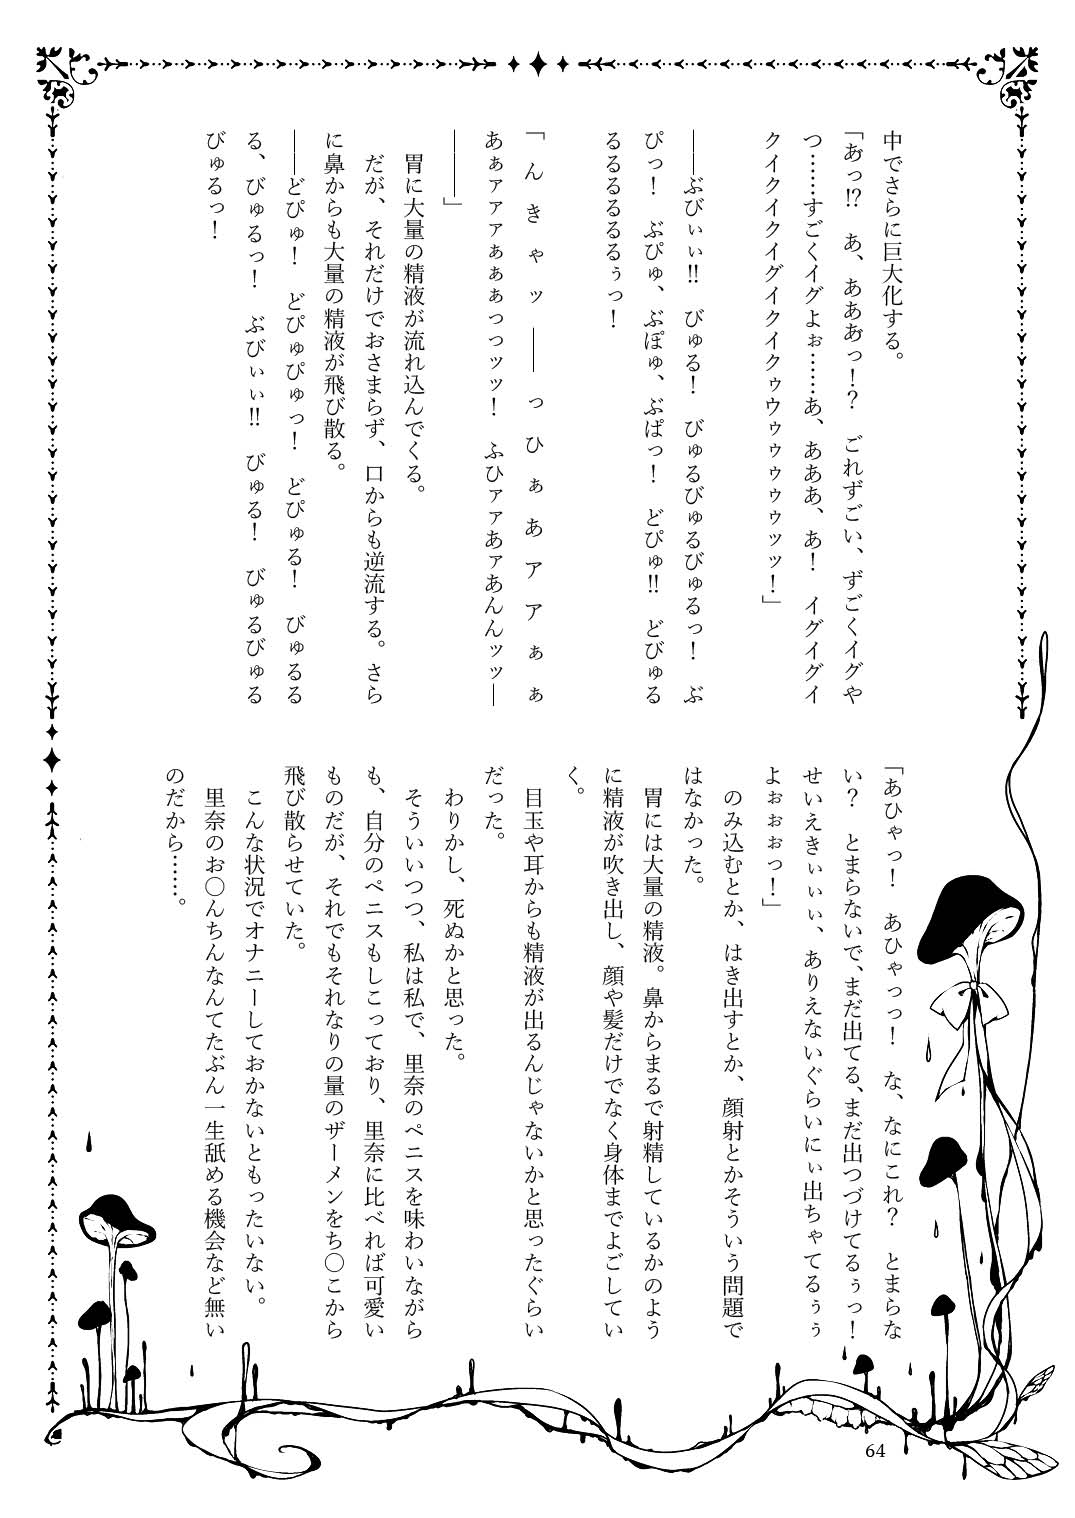 中でさらに巨大化する。
「あ゛っ!?　あ、あああ゛っ！？　ごれずごい、ずごくイグや
つ……すごくイグよぉ……あ、あああ、あ！　イグイグイ
クイクイクイグイクイクゥウゥゥゥゥッッ！」
――ぶびぃぃ!!　びゅる！　びゅるびゅるびゅるっ！　ぶ
ぴっ！　ぶぴゅ、ぶぽゅ、ぶぱっ！　どぴゅ!!　どびゅる
るるるるるるぅっ！
「んきゃッ――っひぁあアアぁぁ
あぁァァァぁぁぁっっッッ！　ふひァァあァあんんッッ―
――」
胃に大量の精液が流れ込んでくる。
だが、それだけでおさまらず、口からも逆流する。さら
に鼻からも大量の精液が飛び散る。
――どぴゅ！　どぴゅぴゅっ！　どぴゅる！　びゅるる
る、びゅるっ！　ぶびぃぃ!!　びゅる！　びゅるびゅる
びゅるっ！
「あひゃっ！　あひゃっっ！　な、なにこれ？　とまらな
い？　とまらないで、まだ出てる、まだ出つづけてるぅっ！
せいえきぃぃぃ、ありえないぐらいにぃ出ちゃてるぅぅ
よぉぉぉっ！」
のみ込むとか、はき出すとか、顔射とかそういう問題で
はなかった。
胃には大量の精液。鼻からまるで射精しているかのよう
に精液が吹き出し、顔や髪だけでなく身体までよごしてい
く。
目玉や耳からも精液が出るんじゃないかと思ったぐらい
だった。
わりかし、死ぬかと思った。
そういいつつ、私は私で、里奈のペニスを味わいながら
も、自分のペニスもしこっており、里奈に比べれば可愛い
ものだが、それでもそれなりの量のザーメンをち〇こから
飛び散らせていた。
こんな状況でオナニーしておかないともったいない。
里奈のお〇んちんなんてたぶん一生舐める機会など無い
のだから……。
64